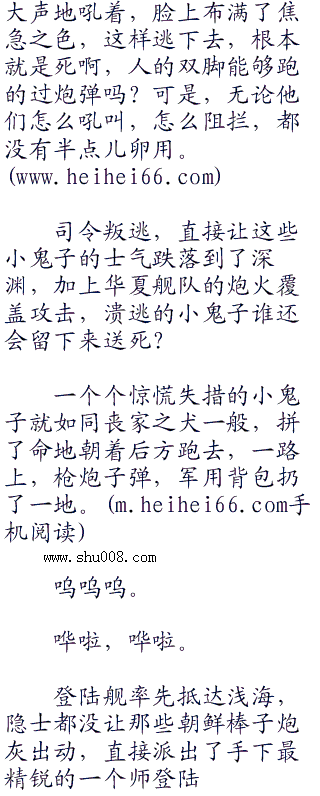 大声地吼着，脸上布满了焦
急之色，这样逃下去，根本
就是死啊，人的双脚能够跑
的过炮弹吗？可是，无论他
们怎么吼叫，怎么阻拦，都
没有半点儿卵用。
(www.heihei66.com)
司令叛逃，直接让这些
小鬼子的士气跌落到了深
渊，加上华夏舰队的炮火覆
盖攻击，溃逃的小鬼子谁还
会留下来送死？
一个个惊慌失措的小鬼
子就如同丧家之犬一般，拼
了命地朝着后方跑去，一路
上，枪炮子弹，军用背包扔
了一地。(m.heihei66.com手
机阅读)
www.shu008.com
呜呜呜。
哗啦，哗啦。
登陆舰率先抵达浅海，
隐士都没让那些朝鲜棒子炮
灰出动，直接派出了手下最
精锐的一个师登陆